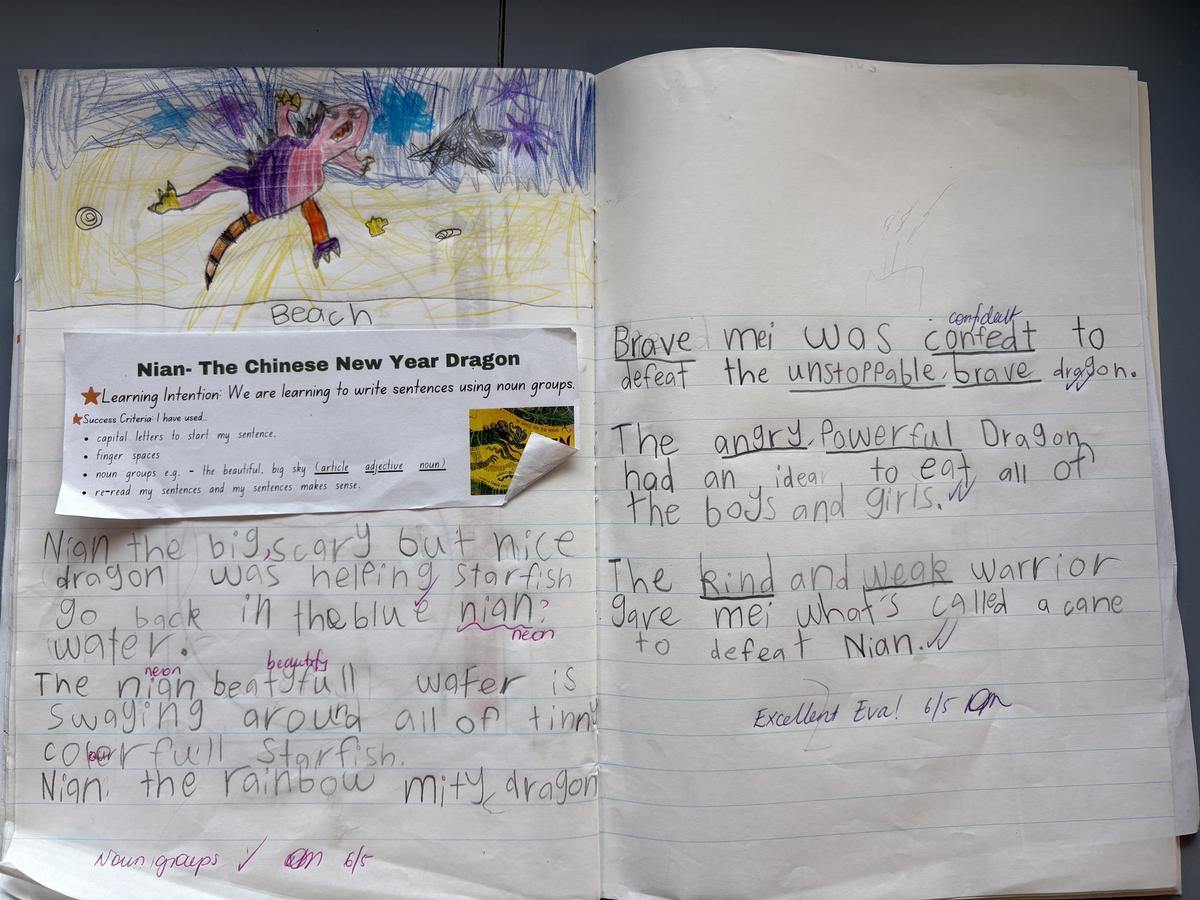 Beach
Nian- The Chinese New Year Dragon
Learning Intention: We are learning to write sentences using noun groups.
Success Criteria: I have used...
• capital letters to start my sentence.
• finger spaces
• noun groups e.g. - the beautiful, big sky (article adjective noun)
• re-read my sentences and my sentences makes sense.
Nian the big, scary but nice
dragon was helping starfish
go back in the blue nian?
neon
water.
neon beautify
The nian beatyfull water is
swaging around all of tinny
colourfull starfish.
Nian the rainbow mity, dragon
Noun groups ✓ 6/5
confident
Brave mei was confedt to
defeat the unstoppable, brave dragon.
The angry, Powerful Dragon
had an idear to eat all of
the boys and girls.
The kind and weak warrior
gave mei what's called a cane
to defeat Nian.
Excellent Eva! 6/5